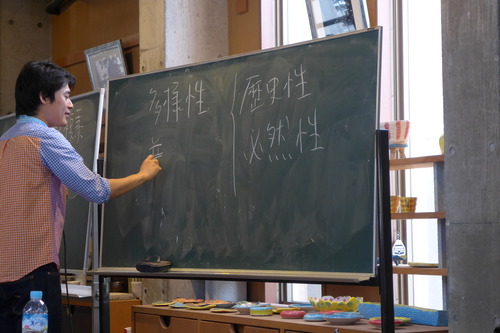 多様性
歴史性
必然性